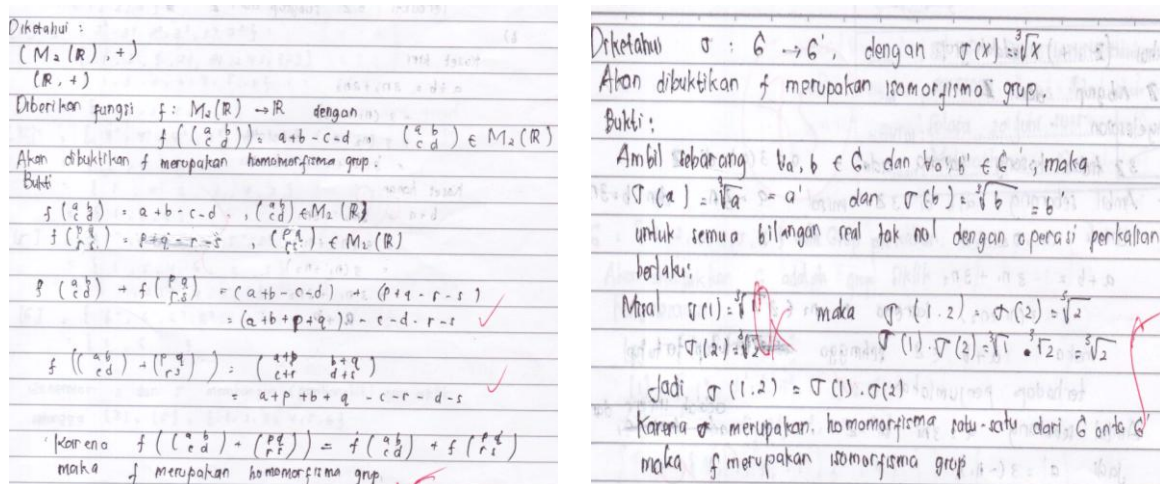 Diketahui :
(M₂(ℝ), +)
(ℝ, +)
Diberikan fungsi f : M₂(ℝ) → ℝ dengan
f((a b / c d)) = a+b-c+d (a b / c d) ∈ M₂(ℝ)
Akan dibuktikan f merupakan homomorfisma grup.
Bukti
f(a b / c d) = a+b-c-d , (a b / c d) ∈ M₂(ℝ)
f(p q / r s) = p+q-r-s (p q / r s) ∈ M₂(ℝ)
f(a b / c d) + f(p q / r s) = (a+b-c+d) + (p+q-r-s)
= (a+b+p+q) - c-d-r-s
f((a b / c d) + (p q / r s)) = (a+p b+q / c+r d+s)
= a+p+b+q -c-r-d-s
Karena f((a b / c d) + (p q / r s)) = f(a b / c d) + f(p q / r s)
maka f merupakan homomorfisma grup.
Diketahui σ : G → G', dengan σ(x) = ∛x
Akan dibuktikan f merupakan isomorfisma grup.
Bukti :
Ambil sebarang ∀a, b ∈ G dan ∀a', b' ∈ G', maka
σ(a) = ∛a = a' dan σ(b) = ∛b = b
untuk semua bilangan real tak nol dengan operasi perkalian
berlaku:
Misal σ(1) = ∛1 maka σ(1.2) = σ(2) = ∛2
σ(2) = ∛2 σ(1) . σ(2) = ∛1 . ∛2 = ∛2
Jadi σ(1.2) = σ(1) . σ(2)
Karena σ merupakan homomorfisma satu-satu dari G onto G'
maka f merupakan isomorfisma grup